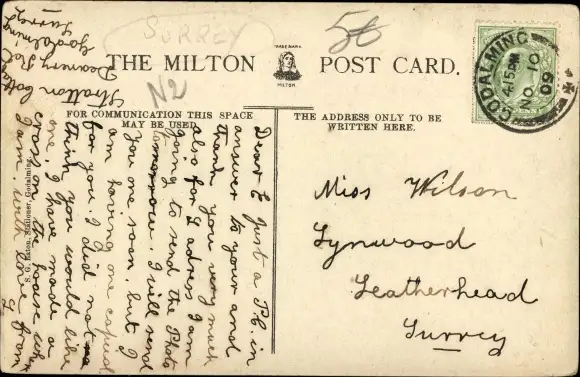 SURREY
50
N2
THE MILTON
TRADE MARK
MILTON
POST CARD.
FOR COMMUNICATION THIS SPACE
MAY BE USED
THE ADDRESS ONLY TO BE
WRITTEN HERE.
GODALMING
4.15 PM
NO 10
09
Stratton Cottage
Deanery Rd
Godalming
Surrey
Dear E Just a P.C. in
answer to your and
thank you very much
also for L adress I am
going to send the Photo
tomorrow. I will send
you one soon, but I
am having one copied
for you. I did not
think you would like
one. I have made a
cross on the house
I am. with love from
S. G. Stationer, Godalming
Miss Wilson
Lynwood
Leatherhead
Surrey